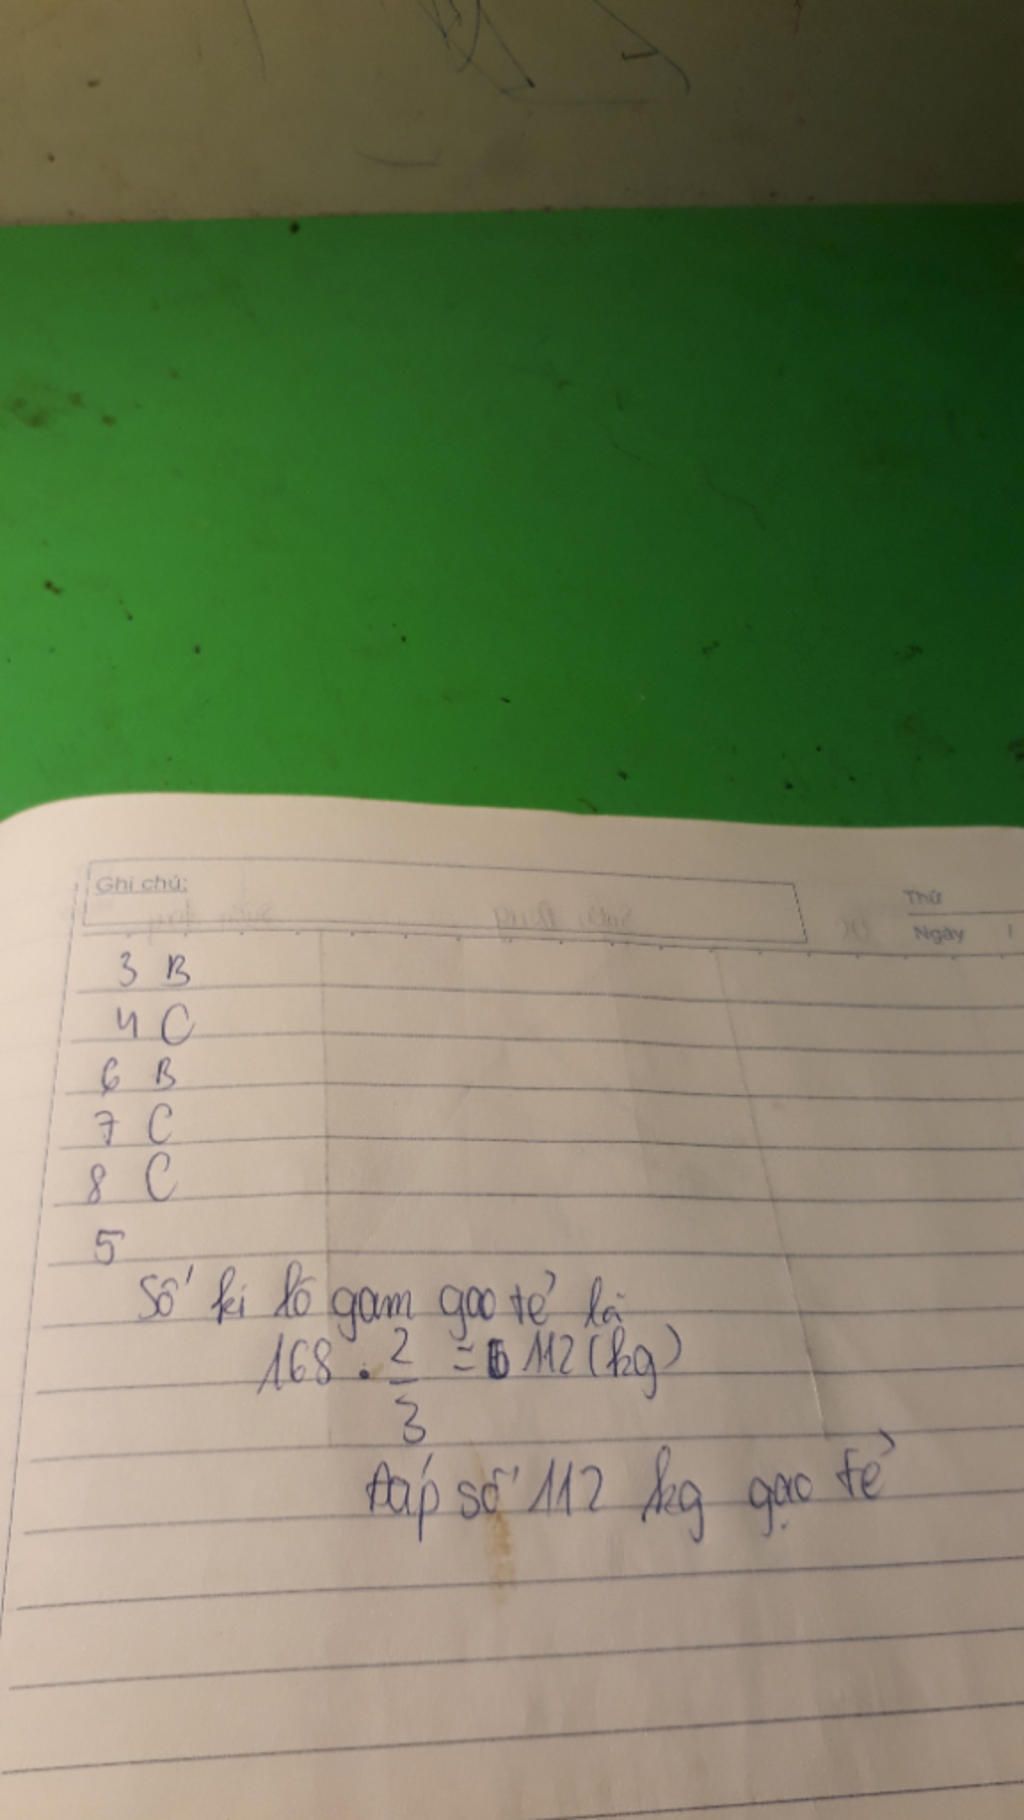 Ghi chú:
Thứ
Ngày /
3 B
4 C
6 B
7 C
8 C
5
Số ki lô gam gạo tẻ là
168 . 2/3 = 112 (kg)
Đáp số 112 kg gạo tẻ